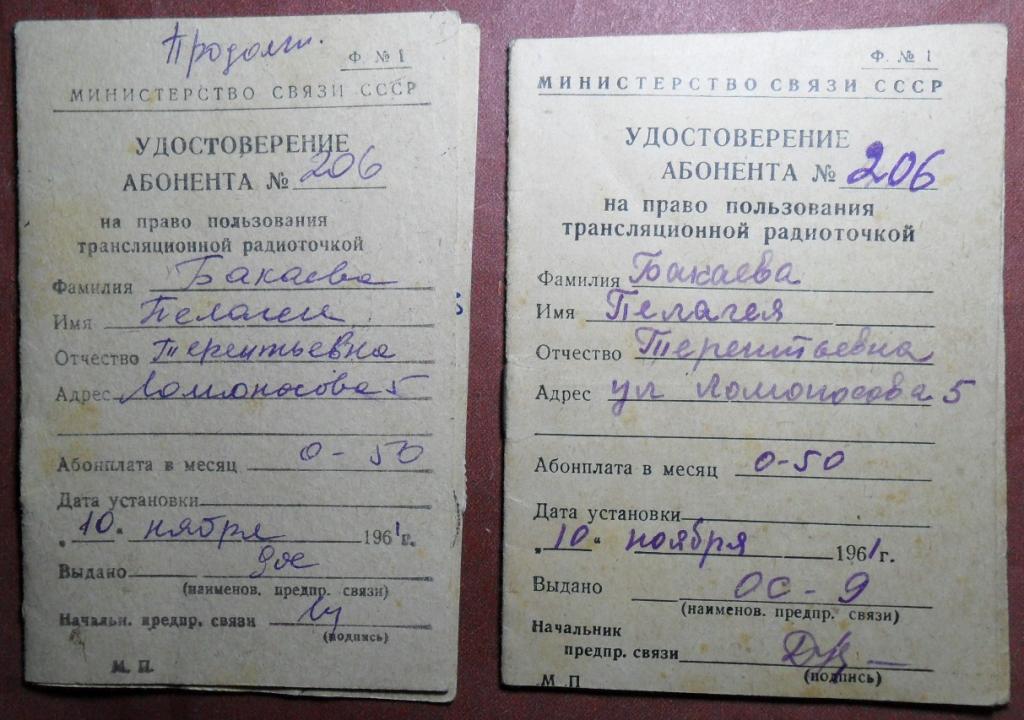 Продолж.
Ф. № 1
МИНИСТЕРСТВО СВЯЗИ СССР
УДОСТОВЕРЕНИЕ
АБОНЕНТА № 206
на право пользования
трансляционной радиоточкой
Фамилия Бакаева
Имя Пелагеи
Отчество Терентьевна
Адрес Ломоносова 5
Абонплата в месяц 0-50
Дата установки
„10“ ноября 1961 г.
Выдано
(наименов. предпр. связи)
Начальн. предпр. связи
(подпись)
М. П.
Ф. № 1
МИНИСТЕРСТВО СВЯЗИ СССР
УДОСТОВЕРЕНИЕ
АБОНЕНТА № 206
на право пользования
трансляционной радиоточкой
Фамилия Бакаева
Имя Пелагея
Отчество Терентьевна
Адрес ул Ломоносова 5
Абонплата в месяц 0-50
Дата установки
„10“ ноября 1961 г.
Выдано ОС-9
(наименов. предпр. связи)
Начальник
предпр. связи
(подпись)
М П